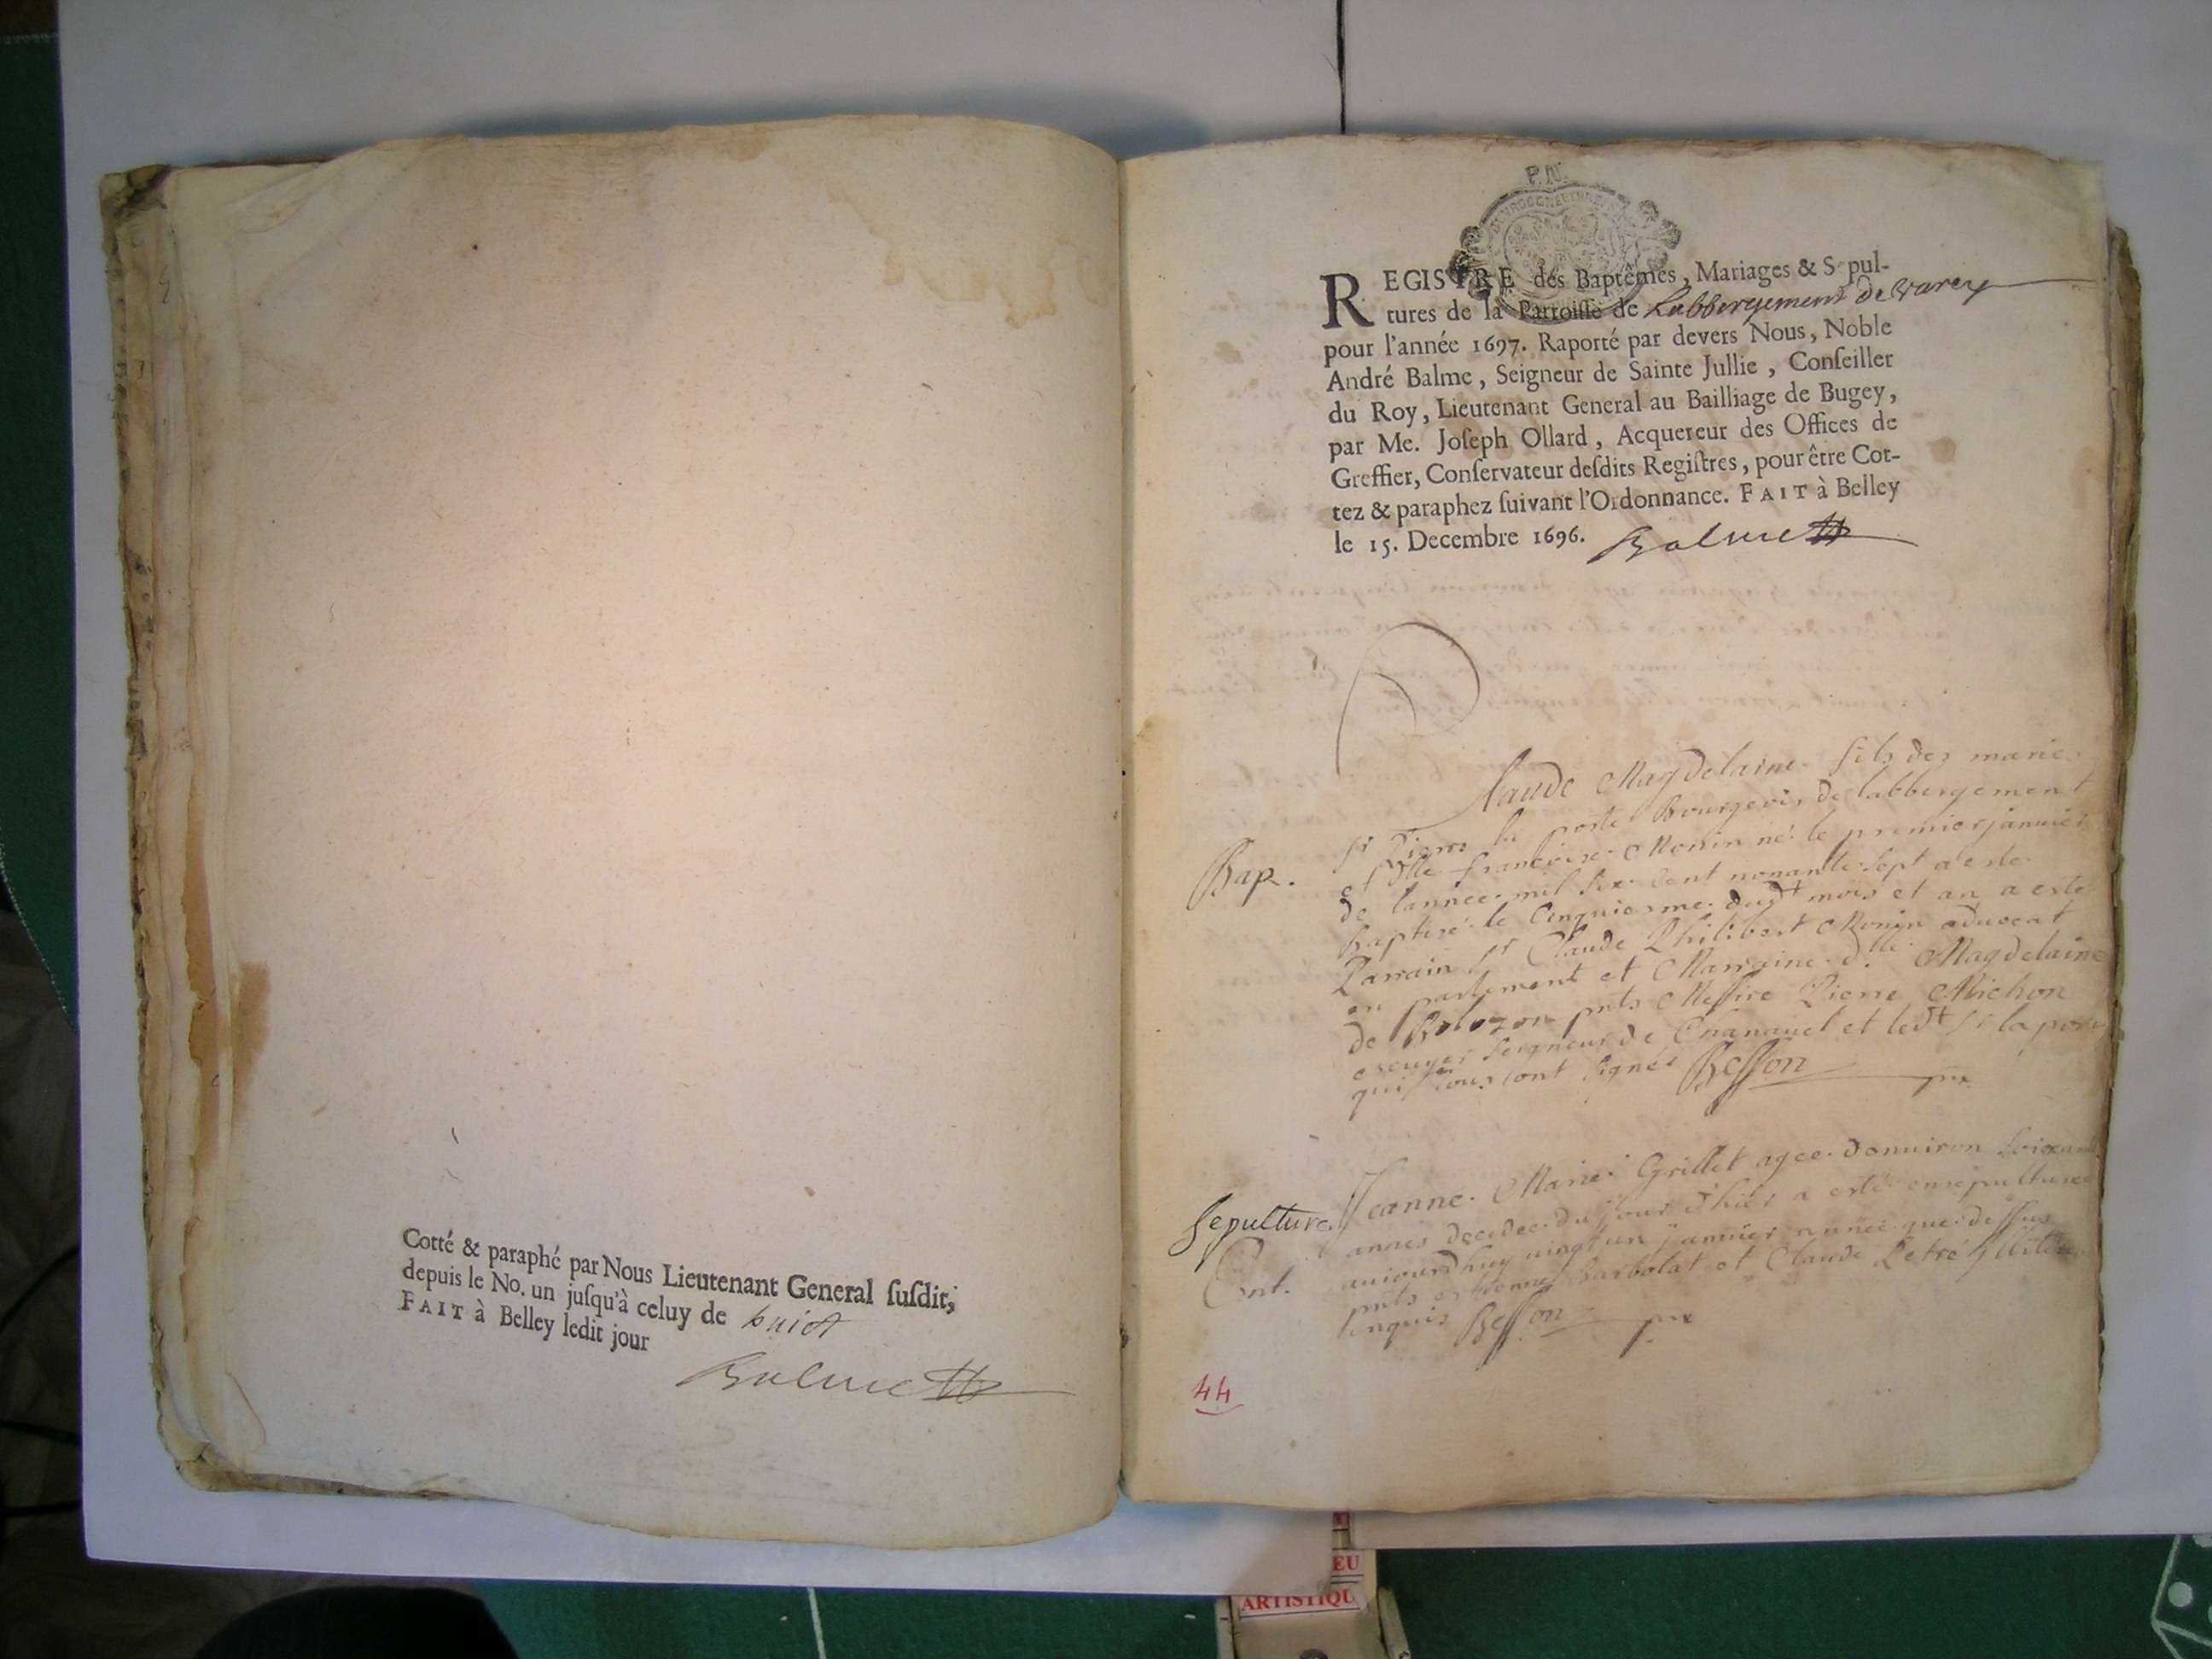 Cotté & paraphé par Nous Lieutenant General ſuſdit,
depuis le No. un juſqu'à celuy de huict
FAIT à Belley ledit jour
Balme
P. N.
REGISTRE des Baptêmes, Mariages & Sepul-
tures de la Parroiſſe de Labbergement de varey
pour l'année 1697. Raporté par devers Nous, Noble
André Balme, Seigneur de Sainte Jullie, Conſeiller
du Roy, Lieutenant General au Bailliage de Bugey,
par Me. Joſeph Ollard, Acquereur des Offices de
Greffier, Conſervateur deſdits Regiſtres, pour être Cot-
tez & paraphez ſuivant l'Ordonnance. FAIT à Belley
le 15. Decembre 1696. Balme
Claude Magdelaine fils des maries
Sr Pierre la poste Bourgeois de labbergement
Bap. et dlle francoise Monin né le premier januier
de lannee mil six cent nonante sept a este
baptisé le cinquiesme dudt mois et an a este
Parrain sr Claude Philibert Monin aduocat
en parlement et Marraine dlle Magdelaine
de Bolozon pnts Messire Pierre Michon
escuyer seigneur de Chanauel et ledt sr la
qui sous sont signés Besson
Sepulture Jeanne Marie Grillet agee denuiron
annes decedee du jour d'hier a esté ensepulturee
aujourdhuy uingt un januier annee que dessus
pnts estienne barbolat et Claude
enquis Besson
44
EU
ARTISTIQU